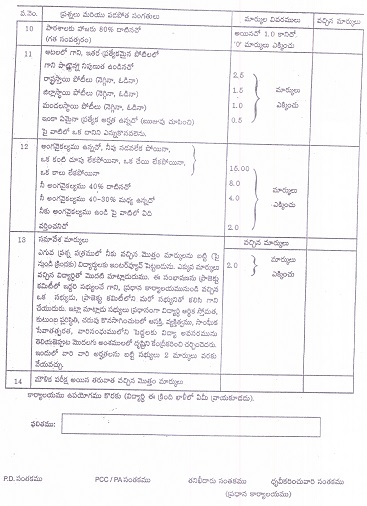 ప.నెం. ప్రశ్నలు మరియు పదసోత సంగతులు మార్కుల వివరములు వచ్చిన మార్కులు
10 పాఠశాలకు హాజరు 80% దాటినచో అయినచో 1.0 కానిచో.
(గత సంవత్సరం) '0' మార్కులు ఎక్కించు
11 ఆటలలో గాని, ఇతర ప్రత్యేకమైన పోటీలలో
గాని నిపుణత ఉండినచో 2.5
రాష్ట్రస్థాయి పోటీలు (నెగ్గినా, ఓడినా) మార్కులు
జిల్లాస్థాయి పోటీలు (నెగ్గినా, ఓడినా) 1.5
మండలస్థాయి పోటీలు (నెగ్గినా, ఓడినా) 1.0 ఎక్కించు
ఇంకా ఏమైనా ప్రత్యేక అర్హత ఉన్నచో (ఋజువు చూపించి) 0.5
పై వాటిలో ఒక దానిని ఎన్నుకొనవలెను.
12 అంగవైకల్యము ఉన్నచో, నీవు నడవలేక పోయినా,
ఒక కంటి చూపు లేకపోయినా, ఒక చేయి లేకపోయినా,
ఒక కాలు లేకపోయినా 15.00
నీ అంగవైకల్యము 40% దాటినచో 8.0
నీ అంగవైకల్యము 40-30% మధ్య ఉన్నచో 4.0 మార్కులు
నీకు అంగవైకల్యము ఉండి పై వాటిలో ఏది ఎక్కించు
వర్తించనిచో 2.0
13 సమావేశ మార్కులు వచ్చిన మార్కులు
ఎగువ ప్రశ్న పత్రములో నీకు వచ్చిన మొత్తం మార్కులను బట్టి (పై
నుండి క్రిందకు) విద్యార్థులకు ఇంటర్వ్యూకి పెట్టబడును. ఎన్నున మార్కులు 2.0 మార్కులు
వచ్చిన విద్యార్థితో మొదటి మాట్లాడుదుము. ఈ సంభాషణను ప్రాజెక్టు ఎక్కించు
కమిటీలో ఇద్దరి సభ్యులచే గాని, ప్రధాన కార్యాలయమునుండి వచ్చిన
ఒక సభ్యుడు, ప్రాజెక్టు కమిటీలోని మరో సభ్యునితో కలిసి గాని
చేయుదురు. ఇట్లా మాట్లాడు సభ్యులు ప్రధానంగా విద్యార్థి ఆర్థిక స్తోమత,
కుటుంబ పరిస్థితి, చదువు కొనసాగించుటలో ఆసక్తి, వ్యక్తిత్వము, సాంఘిక
సేవాతత్పరత, వారిసంఘములోని పెద్దలకు విద్యా అవసరమును
తెలియజెప్పుట మొదలగు అంశములలో దృష్టిని కేంద్రీకరించి చర్చించెదరు.
ఇందులో వారి వారి అర్హతలను బట్టి సభ్యులు 2 మార్కులు వరకు
వేయవచ్చు.
14 మౌఖిక పరీక్ష అయిన తరువాత వచ్చిన మొత్తం మార్కులు
కార్యాలయము ఉపయోగము కొరకు (విద్యార్థి ఈ క్రింది ఖాళీలో ఏమీ వ్రాయకూడదు).
ఫలితము:
P.D. సంతకము PCC / PA సంతకము తనిఖీదారు సంతకము ధృవీకరించువారి సంతకము
(ప్రధాన కార్యాలయం)